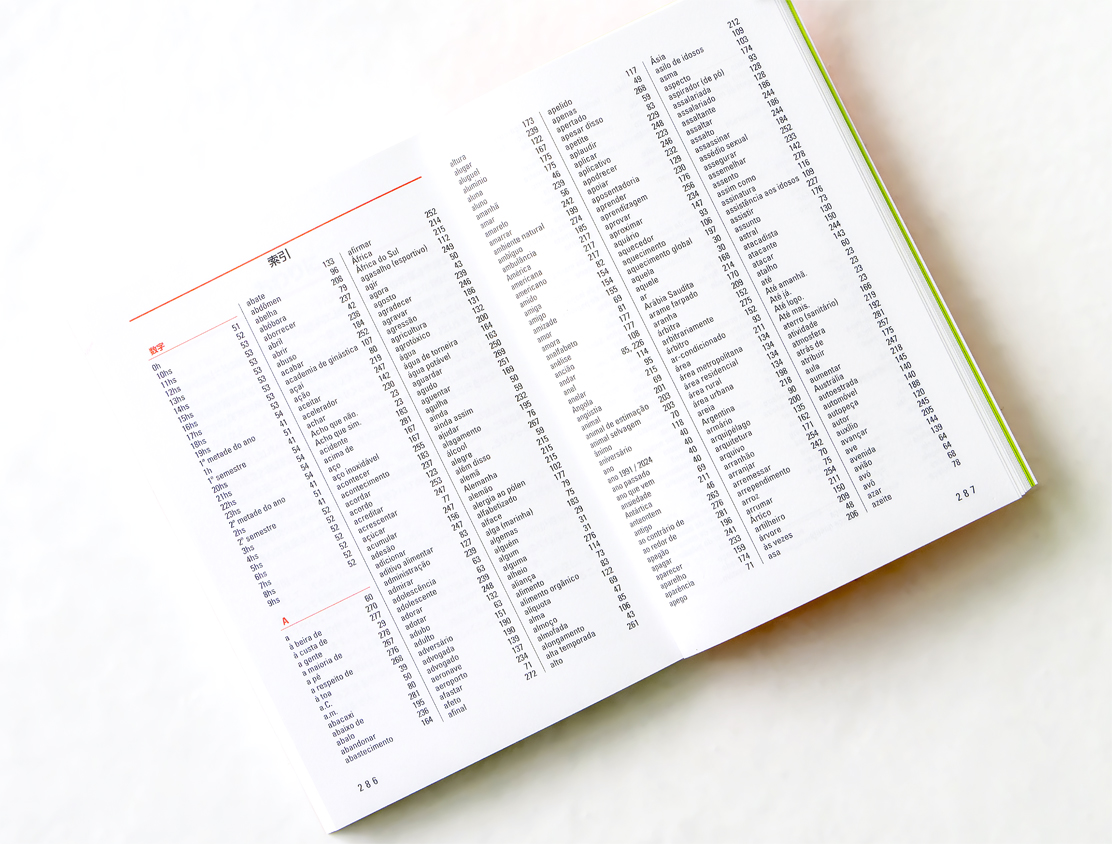 索引
数字
0h 51
10hs 52
11hs 53
12hs 53
13hs 53
14hs 53
15hs 53
16hs 53
17hs 53
18hs 54
19hs 54
1ª metade do ano 41
1h 51
1º semestre 41
20hs 54
21hs 54
22hs 54
23hs 54
2ª metade do ano 41
2hs 51
2º semestre 41
3hs 52
4hs 52
5hs 52
6hs 52
7hs 52
8hs 52
9hs 52
A
a 60
à beira de 270
à custa de 277
a gente 29
a maioria de 278
a pé 267
a respeito de 276
à toa 268
a.C. 39
a.m. 50
abacaxi 80
abaixo de 281
abalo 195
abandonar 236
abastecimento 164
abate 133
abdômen 96
abelha 208
abóbora 79
aborrecer 237
abril 42
abrir 235
abuso 184
acabar 252
academia de ginástica 107
açaí 80
ação 219
aceitar 247
acelerador 142
achar 230
Acho que não. 23
Acho que sim. 23
acidente 183
acima de 281
aço 167
aço inoxidável 167
acontecer 255
acontecimento 183
acordar 253
acordo 123
acreditar 237
acrescentar 247
açúcar 77
acumular 247
adesão 156
adicionar 247
aditivo alimentar 83
administração 127
admirar 239
adolescência 63
adolescente 63
adorar 239
adotar 248
adubo 132
adulto 63
adversário 151
advogada 190
advogado 190
aeronave 139
aeroporto 137
afastar 234
afeto 71
afinal 272
afirmar 252
África 214
África do Sul 215
agasalho (esportivo) 112
agir 249
agora 50
agosto 43
agradecer 239
agravar 246
agressão 186
agricultura 132
agrotóxico 131
água 200
água de torneira 164
água potável 163
aguardar 250
agudo 269
aguentar 251
agulha 169
ainda 50
ainda assim 59
ajudar 232
alagamento 195
álcool 76
alegre 267
além disso 59
alemã 215
Alemanha 215
alemão 215
alergia ao pólen 102
alfabetizado 177
alface 79
alga (marinha) 75
algemas 183
alguém 29
algum 31
alguma 31
alheio 276
aliança 114
alimento 73
alimento orgânico 83
alíquota 122
alma 69
almoço 47
almofada 85
alongamento 106
alta temporada 43
alto 261
286
altura 173
alugar 239
aluguel 122
alumínio 167
aluna 175
aluno 175
amanhã 46
amar 239
amarelo 56
amarrar 242
ambiente natural 199
ambíguo 274
ambulância 185
América 217
americana 217
americano 217
amido 82
amiga 154
amigo 154
amizade 155
amor 69
amora 81
analfabeto 177
análise 177
ancião 108
andar 85, 226
anel 114
anelar 95
Angola 215
angústia 69
animal 201
animal de estimação 203
animal selvagem 203
ânimo 70
aniversário 118
ano 40
ano 1991 / 2024 40
ano passado 40
ano que vem 40
ansiedade 69
Antártica 211
anteontem 46
antigo 263
ao contrário de 276
ao redor de 281
apagão 196
apagar 241
aparecer 233
aparelho 159
aparência 174
apego 71
apelido 117
apenas 49
apertado 268
apesar disso 59
apetite 83
aplaudir 229
aplicar 248
aplicativo 223
apodrecer 246
apoiar 232
aposentadoria 129
aprender 230
aprendizagem 176
aprovar 256
aproximar 234
aquário 147
aquecedor 93
aquecimento 106
aquecimento global 197
aquela 30
aquele 30
ar 168
Arábia Saudita 214
arame farpado 170
aranha 209
árbitra 152
arbitrariamente 275
árbitro 152
ar-condicionado 93
área 211
área metropolitana 134
área residencial 134
área rural 134
área urbana 134
areia 198
Argentina 218
armário 90
arquipélago 200
arquitetura 135
arquivo 162
arranhão 171
arranjar 254
arremessar 242
arrependimento 70
arroz 75
arrumar 254
Ártico 211
artilheiro 150
árvore 209
às vezes 48
asa 206
Ásia 212
asilo de idosos 109
asma 103
aspecto 174
aspirador (de pó) 93
assalariada 128
assalariado 128
assaltante 186
assaltar 244
assalto 186
assassinar 244
assédio sexual 184
assegurar 252
assemelhar 233
assento 142
assim como 278
assinatura 116
assistência aos idosos 109
assistir 227
assunto 176
astral 73
atacadista 130
atacante 150
atacar 244
atalho 143
até 60
Até amanhã. 23
Até já. 23
Até logo. 23
Até mais. 23
aterro (sanitário) 166
atividade 219
atmosfera 192
atrás de 281
atribuir 257
aula 175
aumentar 247
Austrália 218
autoestrada 145
automóvel 140
autopeça 140
autor 188
auxílio 120
avançar 245
ave 205
avenida 144
avião 139
avó 64
avô 64
azar 68
azeite 78
287